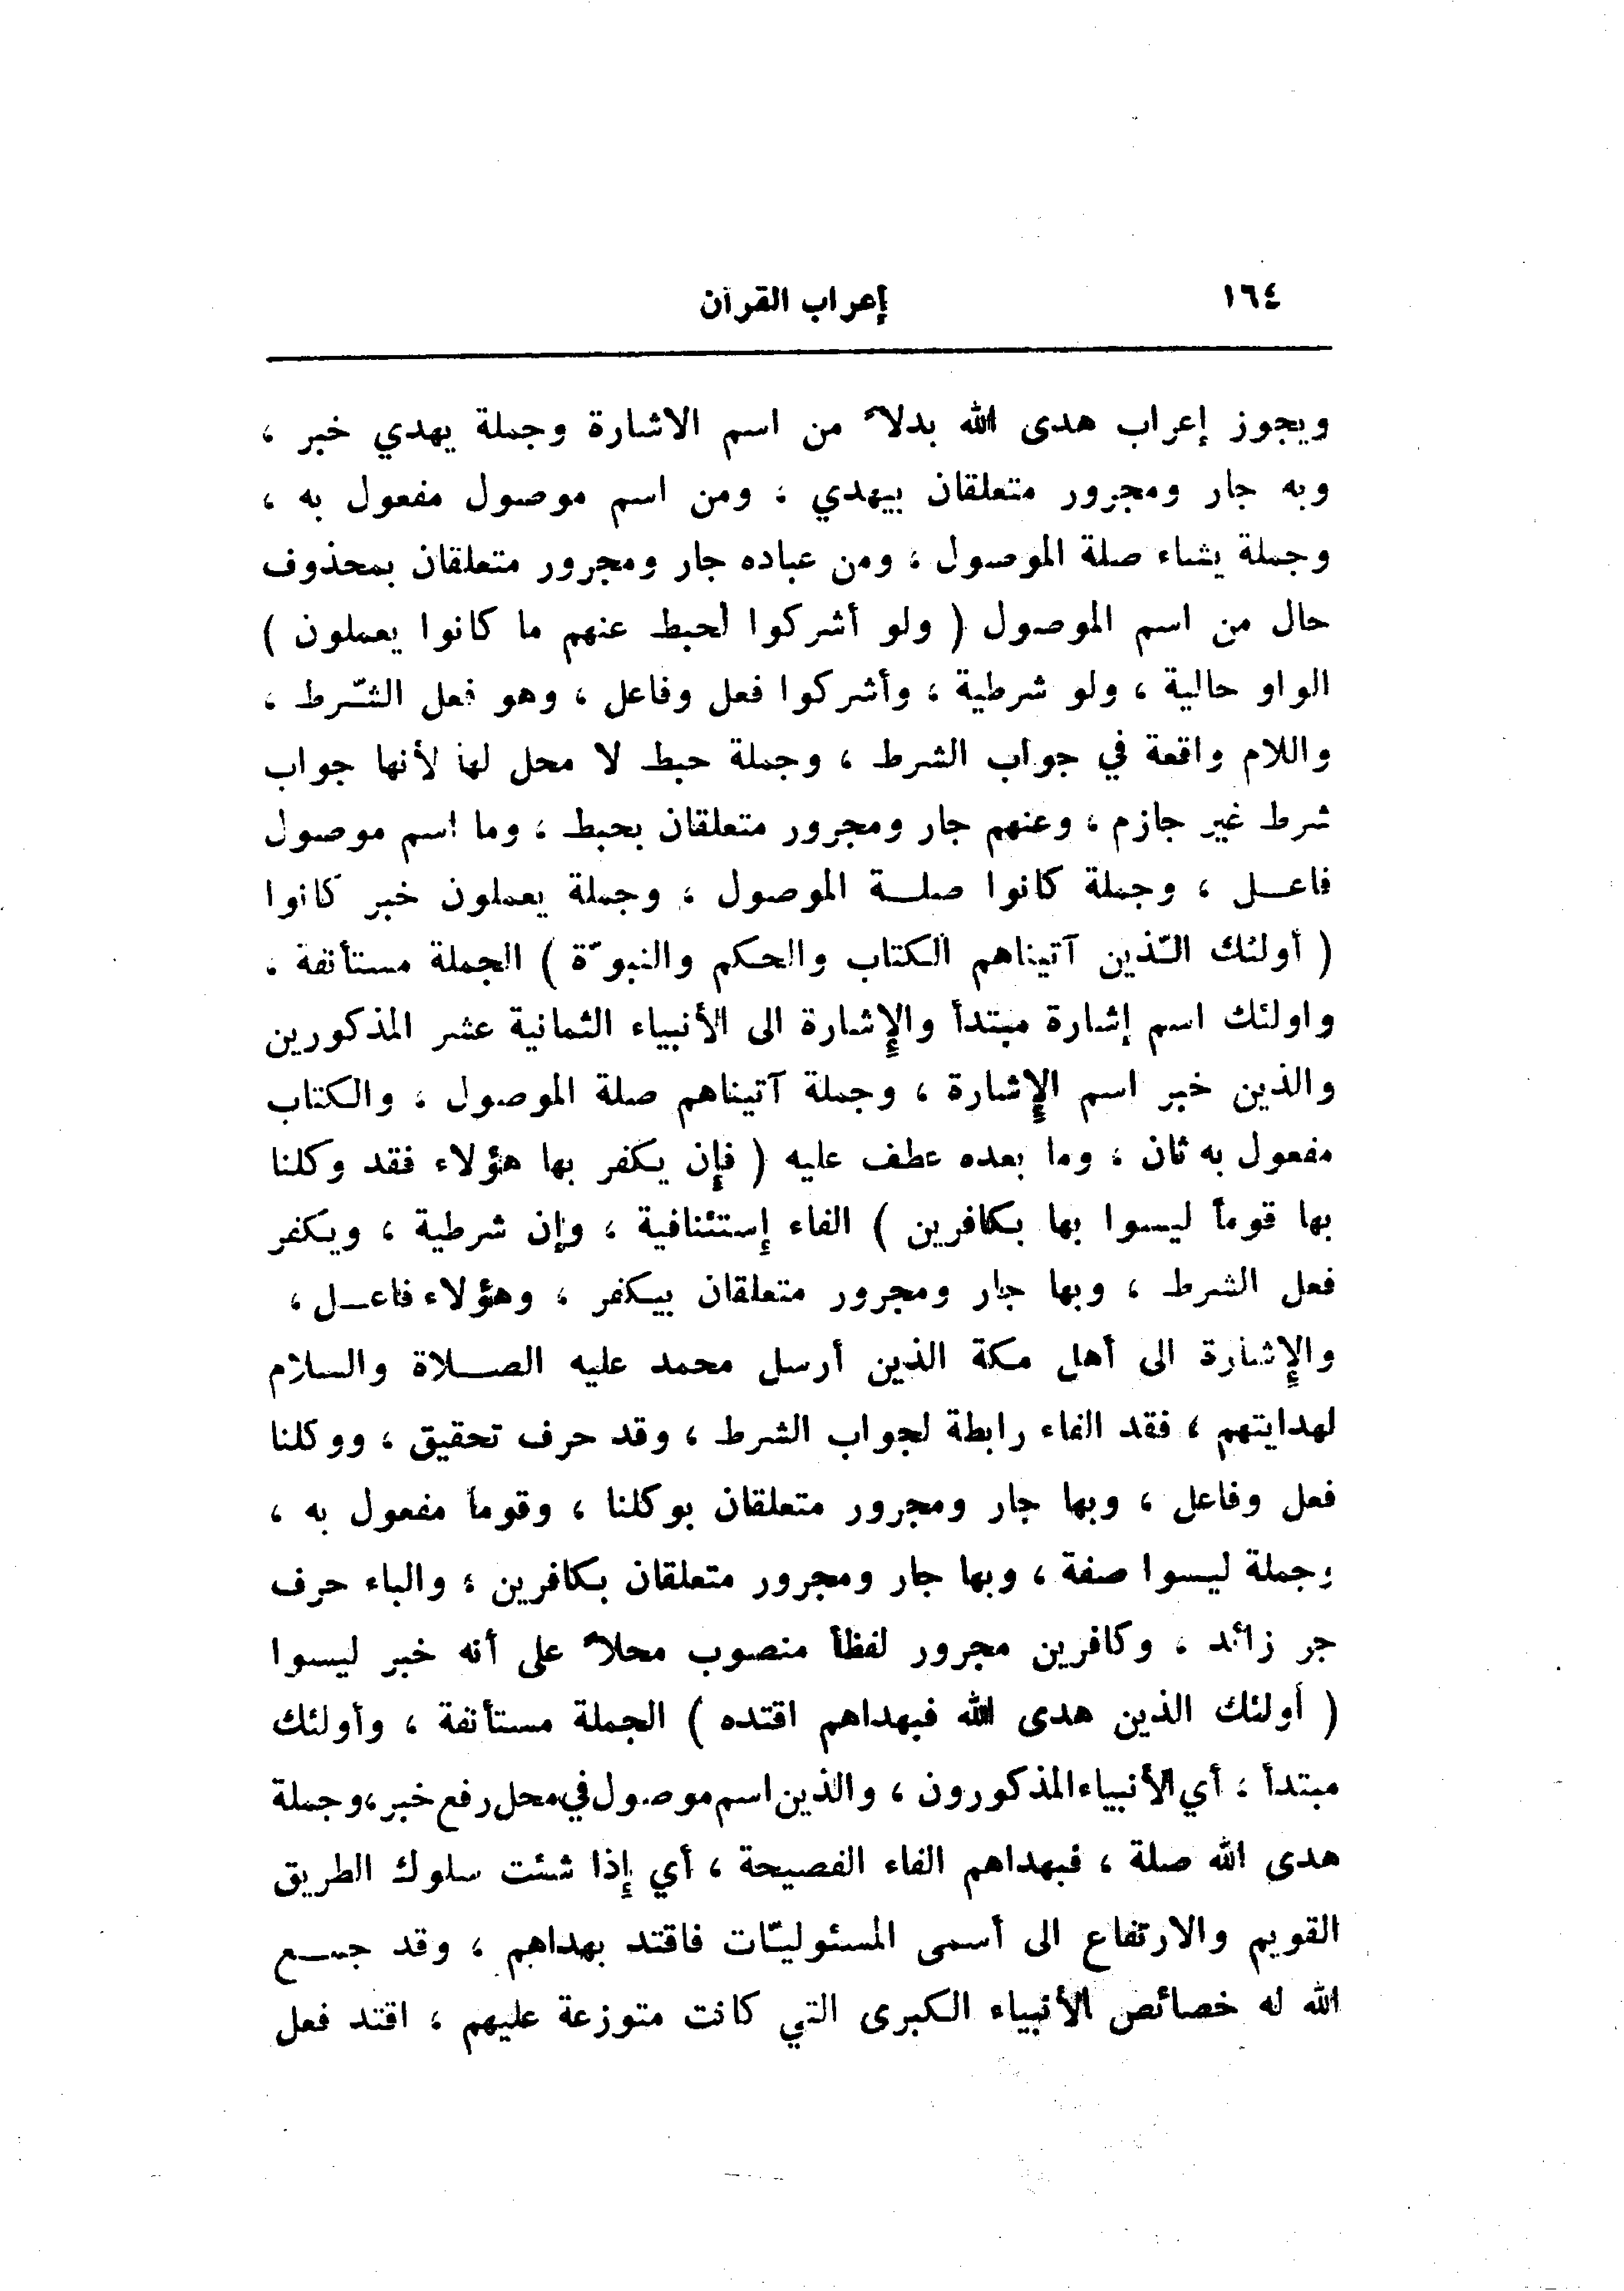 ١٦٤ إعراب القرآن
ويجوز إعراب هدى الله بدلاً من اسم الاشارة وجملة يهدي خبر ،
وبه جار ومجرور متعلقان بيهدي ، ومن اسم موصول مفعول به ،
وجملة يشاء صلة الموصول ، ومن عباده جار ومجرور متعلقان بمحذوف
حال من اسم الموصول ( ولو أشركوا لحبط عنهم ما كانوا يعملون )
الواو حالية ، ولو شرطية ، وأشركوا فعل وفاعل ، وهو فعل الشّرط ،
واللام واقعة في جواب الشرط ، وجملة حبط لا محل لها لأنها جواب
شرط غير جازم ، وعنهم جار ومجرور متعلقان بحبط ، وما اسم موصول
فاعـل ، وجملة كانوا صلـة الموصول ، وجملة يعملون خبر كانوا
( أولئك الّذين آتيناهم الكتاب والحكم والنبوّة ) الجملة مستأنفة ،
واولئك اسم إشارة مبتدأ والإشارة الى الأنبياء الثمانية عشر المذكورين
والذين خبر اسم الإشارة ، وجملة آتيناهم صلة الموصول ، والكتاب
مفعول به ثان ، وما بعده عطف عليه ( فإن يكفر بها هؤلاء فقد وكلنا
بها قوماً ليسوا بها بكافرين ) الفاء إستئنافية ، وإن شرطية ، ويكفر
فعل الشرط ، وبها جار ومجرور متعلقان بيكفر ، وهؤلاء فاعـل ،
والإشارة الى أهل مكة الذين أرسل محمد عليه الصـلاة والسلام
لهدايتهم ، فقد الفاء رابطة لجواب الشرط ، وقد حرف تحقيق ، ووكلنا
فعل وفاعل ، وبها جار ومجرور متعلقان بوكلنا ، وقوماً مفعول به ،
وجملة ليسوا صفة ، وبها جار ومجرور متعلقان بكافرين ، والباء حرف
جر زائد ، وكافرين مجرور لفظاً منصوب محلاً على أنه خبر ليسوا
( أولئك الذين هدى الله فبهداهم اقتده ) الجملة مستأنفة ، وأولئك
مبتدأ ، أي الأنبياء المذكورون ، والذين اسم موصول في محل رفع خبر ، وجملة
هدى الله صلة ، فبهداهم الفاء الفصيحة ، أي إذا شئت سلوك الطريق
القويم والارتفاع الى أسمى المسئوليّات فاقتد بهداهم ، وقد جمـع
الله له خصائص الأنبياء الكبرى التي كانت متوزعة عليهم ، اقتد فعل